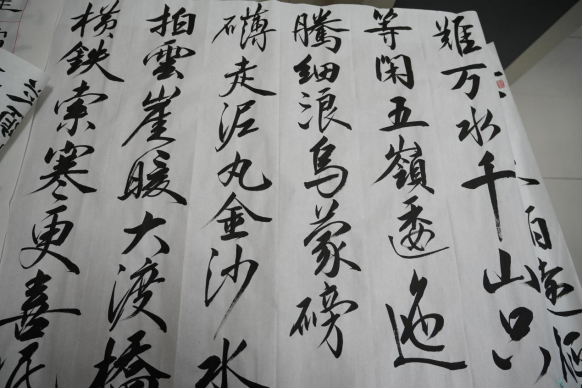 難万水千山只
等閑五嶺逶迤
騰細浪烏蒙磅
礴走泥丸金沙水
拍雲崖暖大渡橋
横鉄索寒更喜